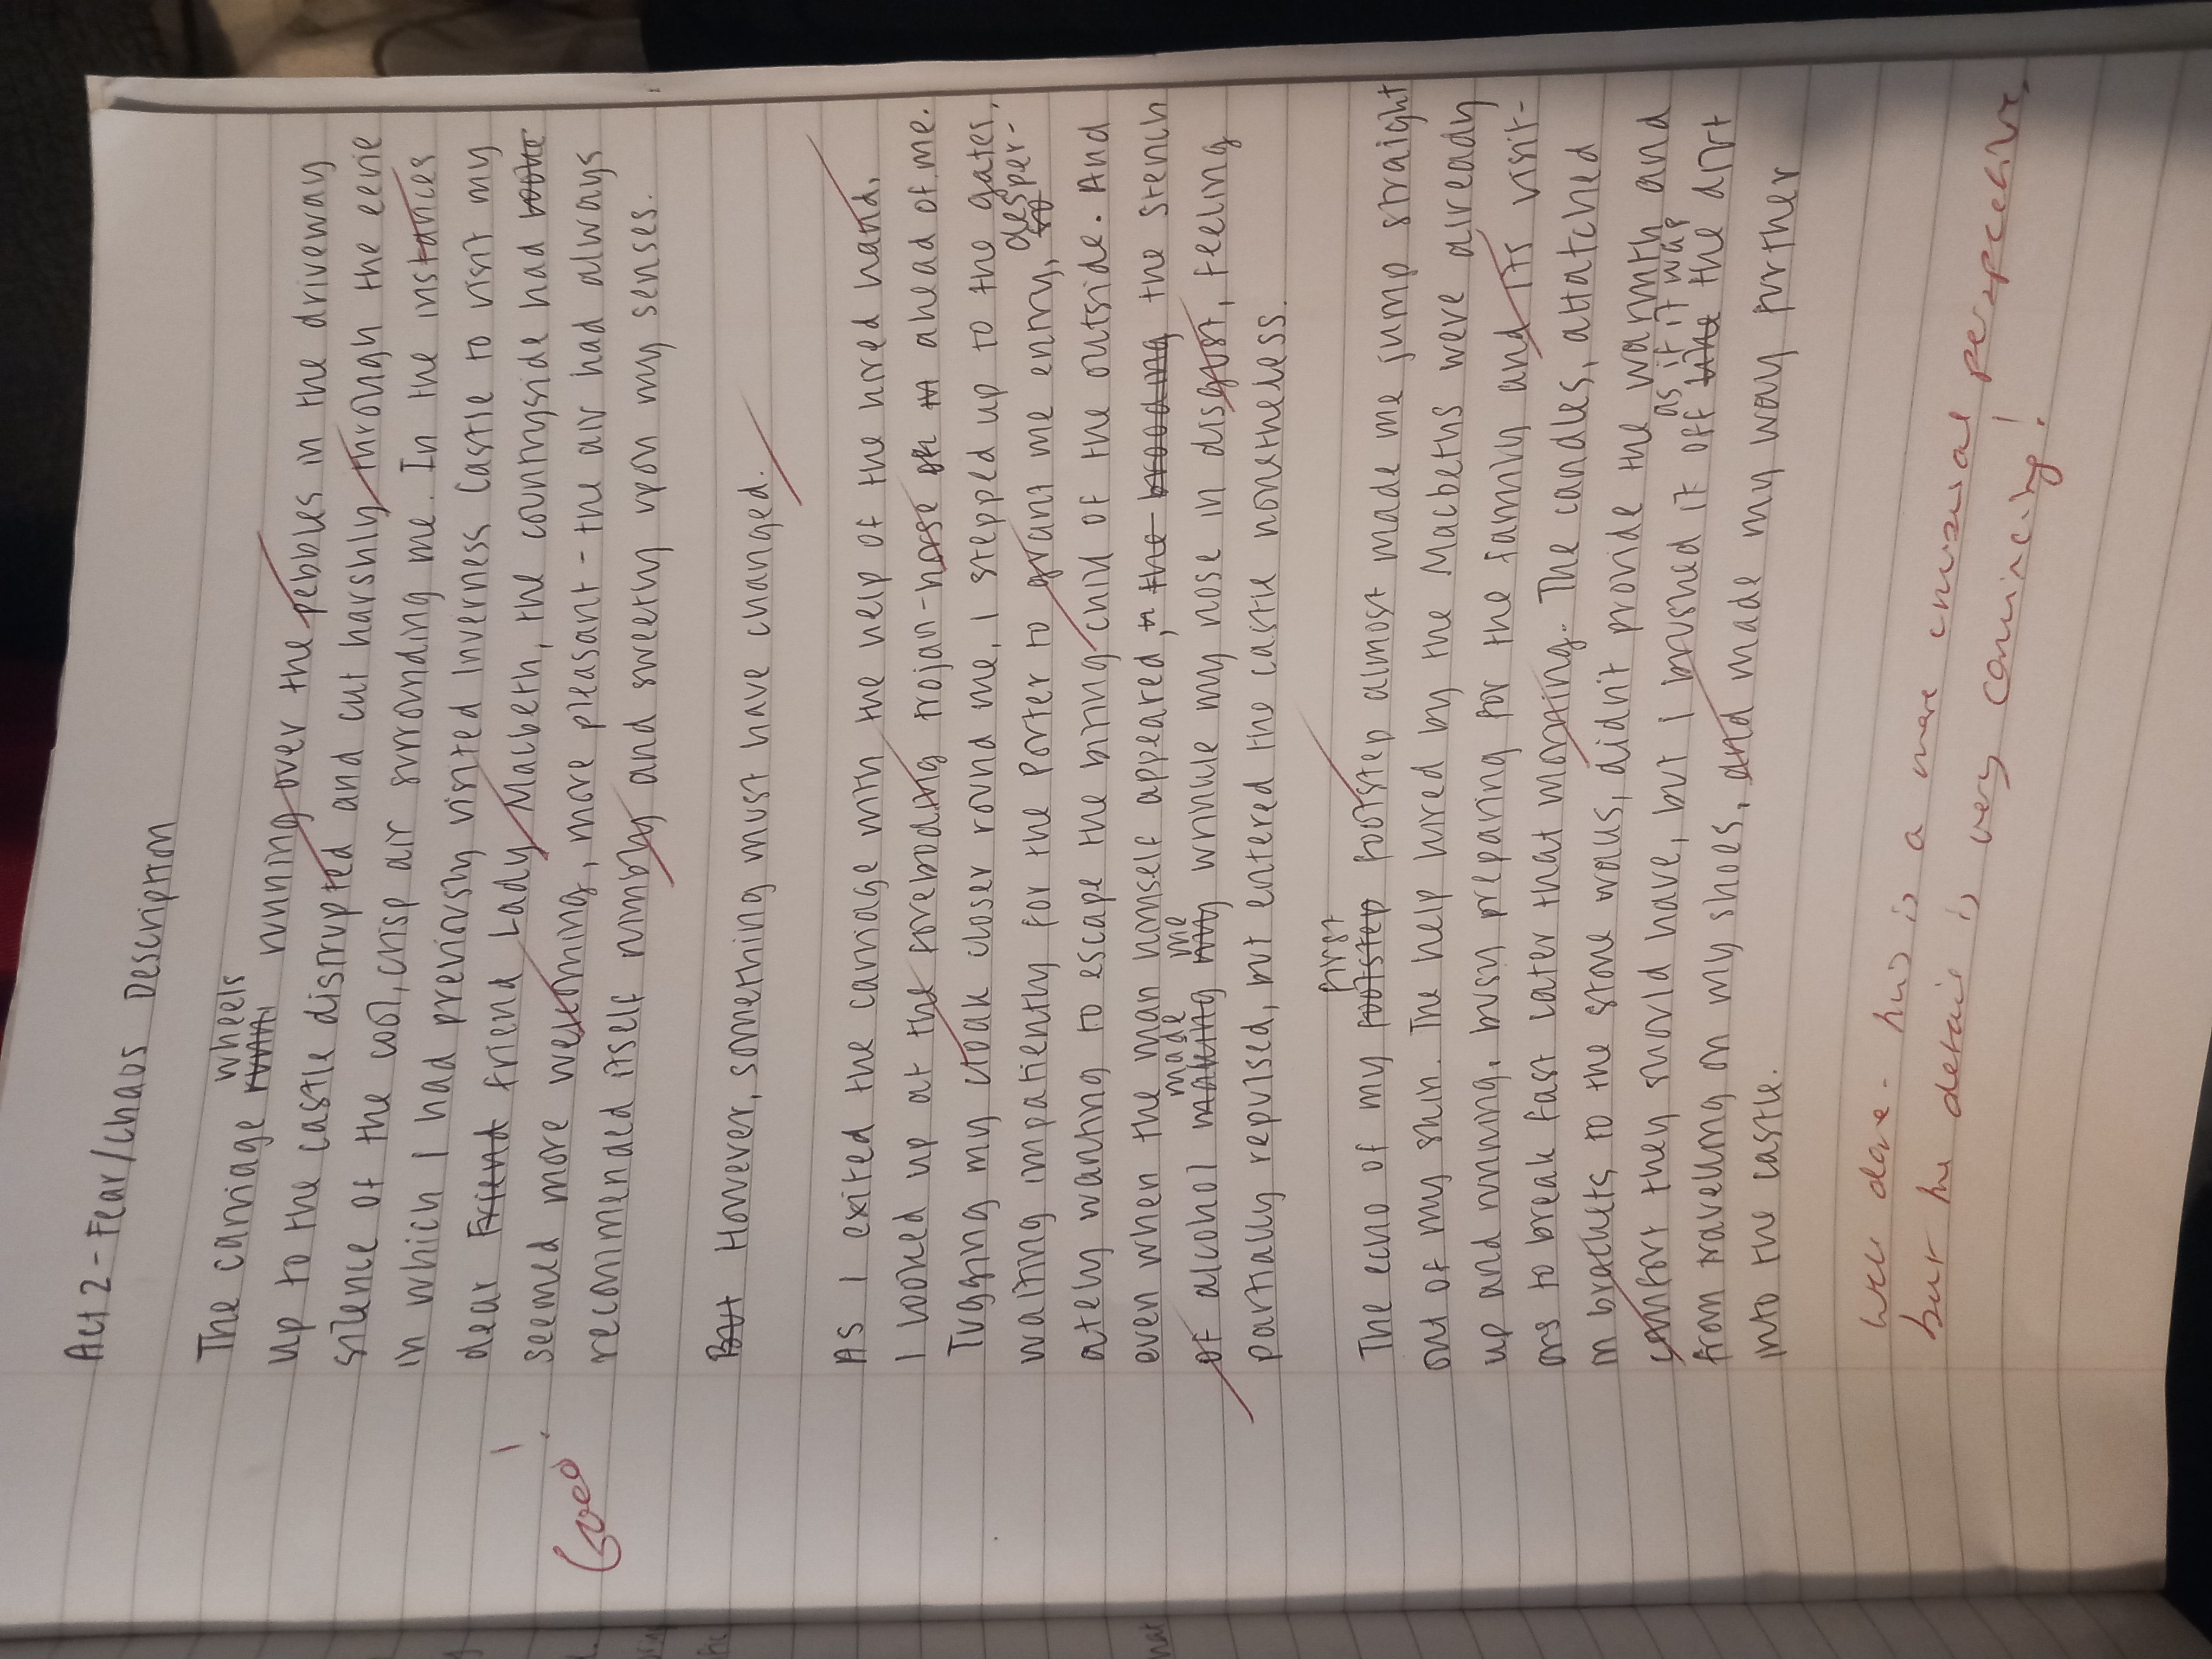 Act 2 - Fear/Chaos Description
The carriage wheels running over the pebbles in the driveway
up to the castle disrupted and cut harshly through the eerie
silence of the cool, crisp air surrounding me. In the instances
in which I had previously visited Inverness Castle to visit my
dear friend Lady Macbeth, the countryside had
seemed more welcoming, more pleasant - the air had always
recommended itself nimbly and sweetly upon my senses.
Good!
But However, something must have changed.
As I exited the carriage with the help of the hired hand,
I looked up at the foreboding trojan-horse ahead of me.
Tugging my cloak closer round me, I stepped up to the gates,
waiting impatiently for the Porter to grant me entry, desper-
ately wanting to escape the biting child of the outside. And
even when the man himself appeared, the brooding the stench
of alcohol made me wrinkle my nose in disgust, feeling
partially repulsed, but entered the castle nonetheless.
The echo of my first footstep almost made me jump straight
out of my skin. The help hired by the Macbeths were already
up and running, busy preparing for the family and its visit-
ors to break fast later that morning. The candles, attatched
in brackets to the stone walls, didn't provide the warmth and
comfort they should have, but I brushed it off as if it was the dirt
from travelling on my shoes, and made my way further
into the castle.
Well done - this is a more unusual perspective,
but the detail is very convincing!